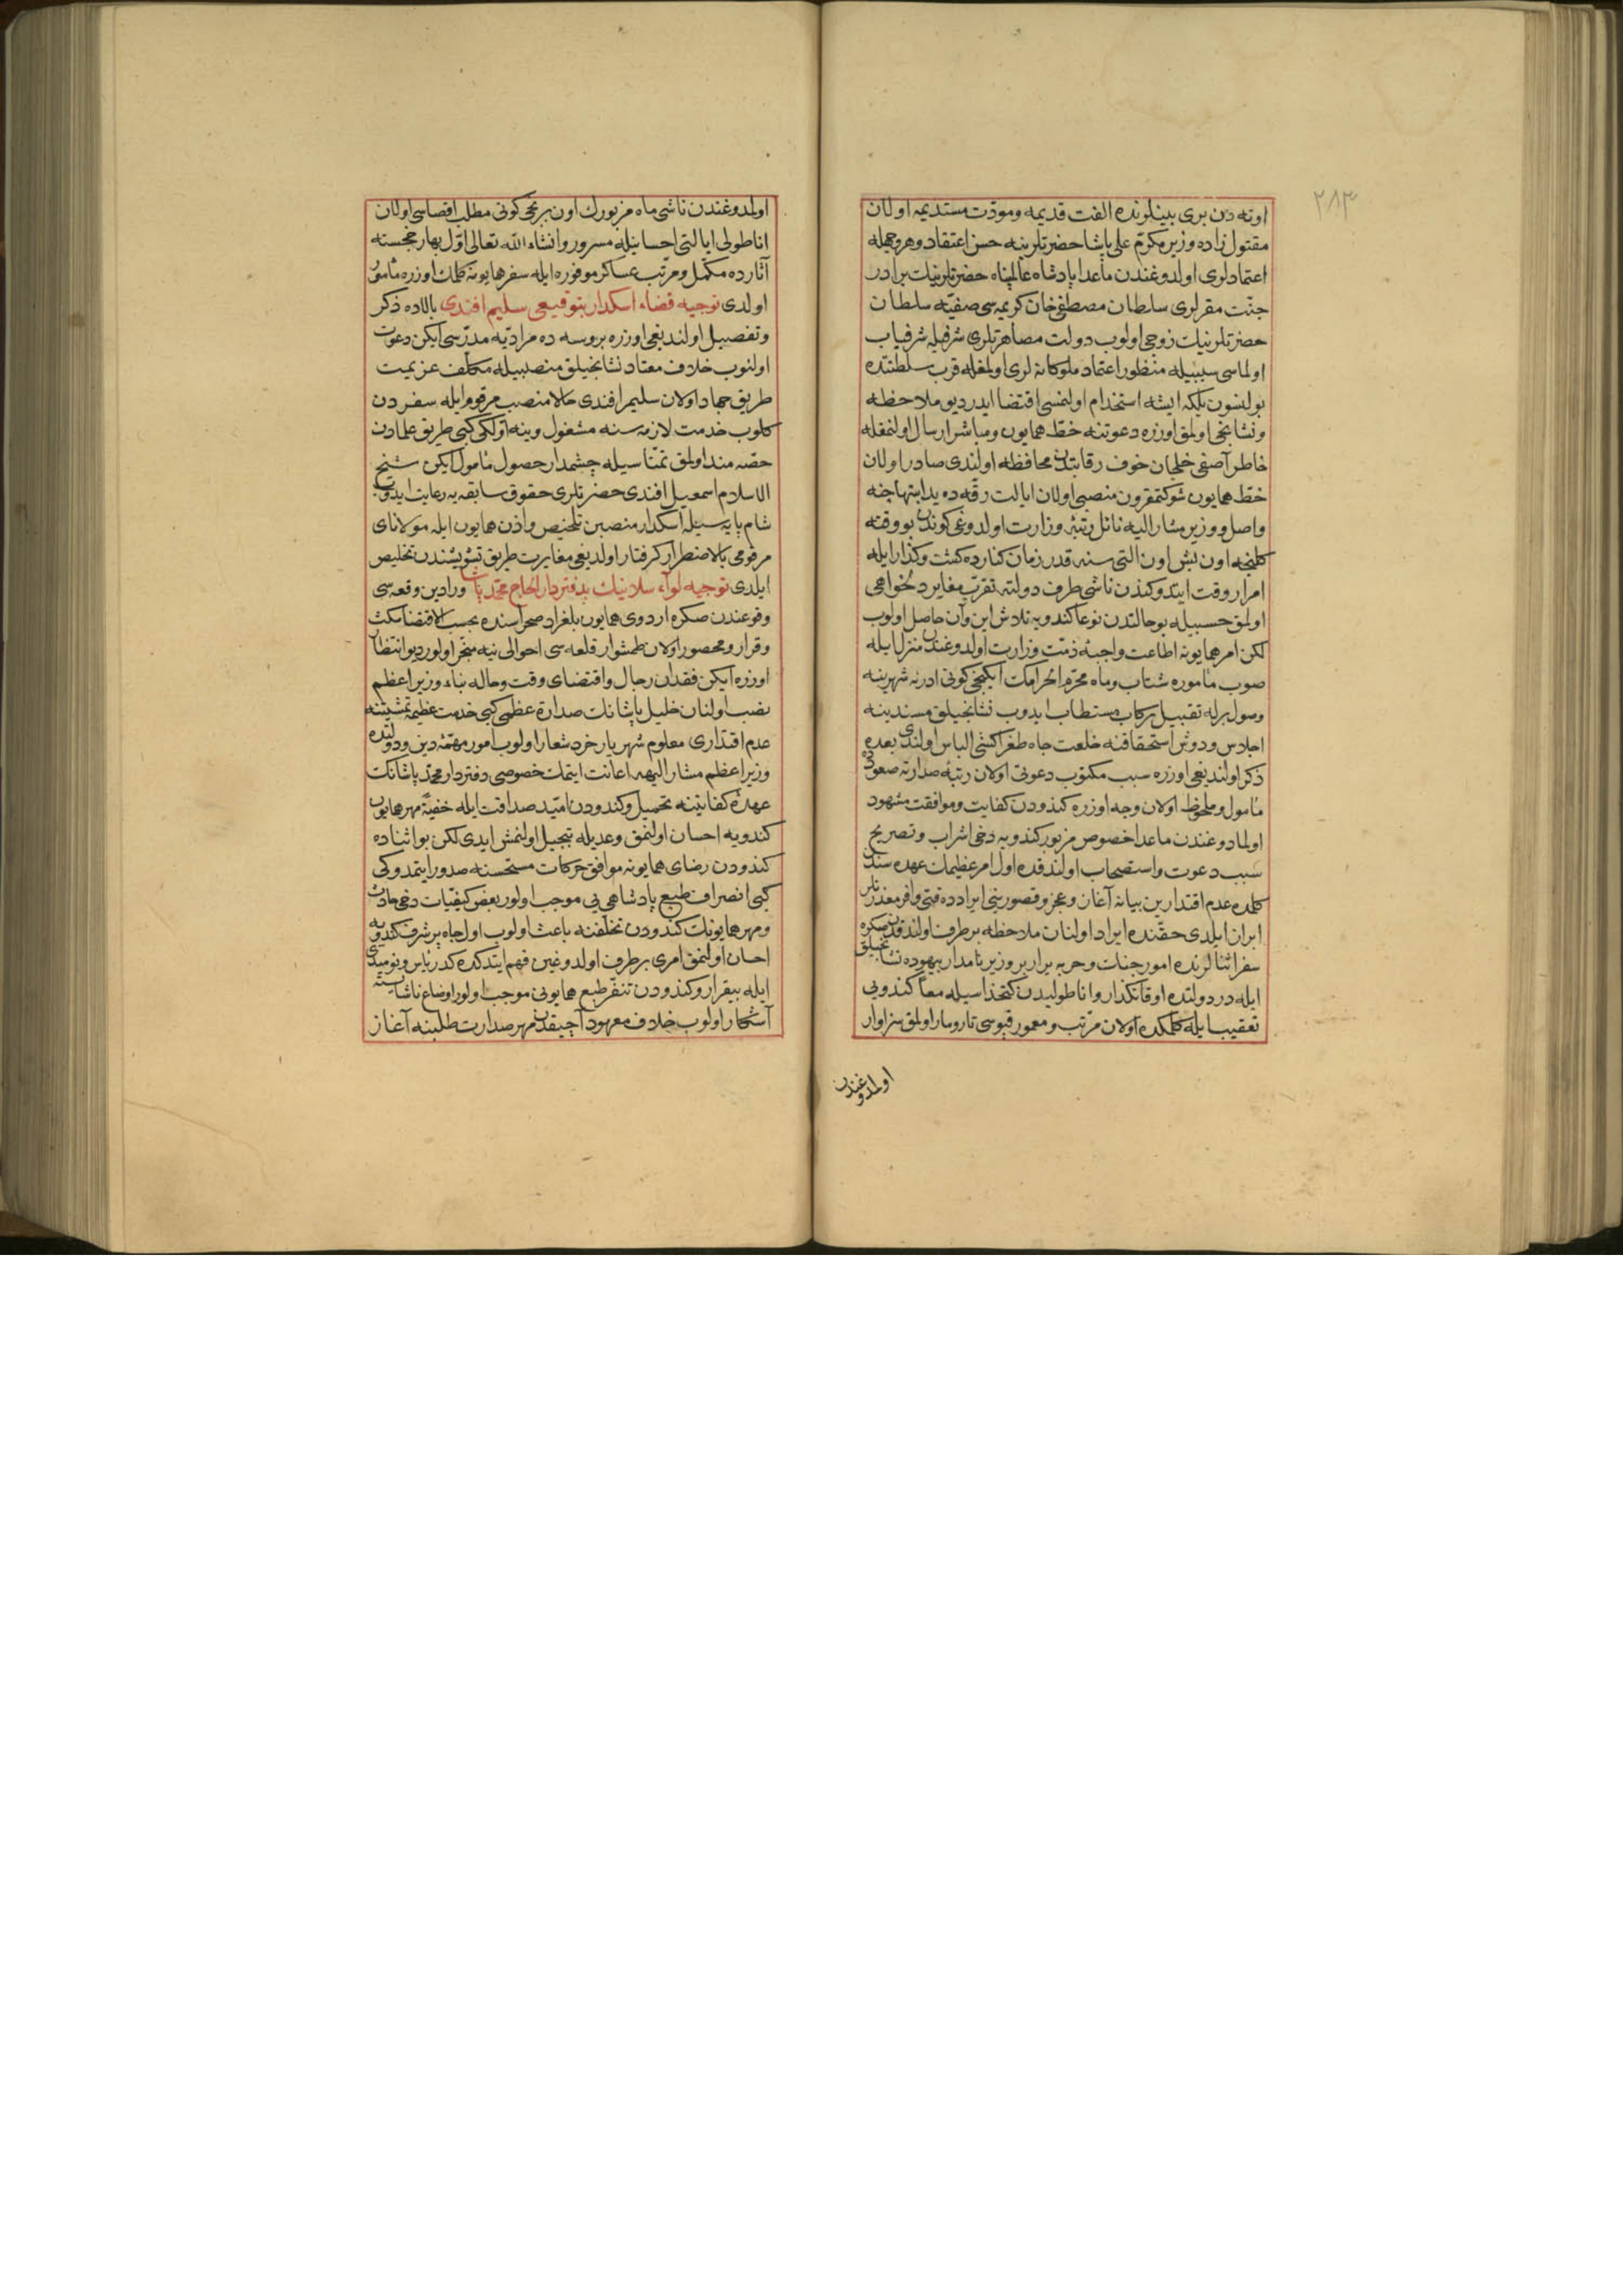 ٢٨٣
اوته دن برى بينلرنده الفت قديمه ومودّت مستديمه اولان
مقتول زاده وزير مكرّم على پاشا حضرتلرينه حسن اعتقاد وهر وجهله
اعتمادلرى اولدوغندن ماعدا پادشاه عالمپناه حضرتلرينك برادر
جنّت مقرلرى سلطان مصطفى خان كريمه سى صفيّه سلطان
حضرتلرينك زوجى اولوب دولت مصاهرتلرى شرفيله شرفياب
اولماسى سببيله منظور اعتماد ملوكانه لرى اولمغله قرب سلطنتده
بولنسون بلكه ايشه استخدام اولنمسى اقتضا ايدر ديو ملاحظه
ونشانجى اولمق اوزره دعوتنه خطّ همايون ومباشر ارسال اولنمغله
خاطر آصفى خلجان خوف رقابتدن محافظه اولندى صادر اولان
خطّ همايون شوكتمقرون منصبى اولان ايالت رقّه ده يد ابتهاجنه
واصل ووزير مشار اليه نائل رتبۀ وزارت اولدوغى كوندن بو وقته
كلنجه اون بش اون التى سنه قدر زمان كنارده كشت وكذار ايله
امرار وقت ايتدوكندن ناشى طرف دولته تقرّب مغاير دلخواهى
اولمق حسبيله بو حالتدن نوعا كندويه تلاش اين وآن حاصل اولوب
لكن امر همايونه اطاعت واجبۀ ذمّت وزارت اولدوغندن منزل ايله
صوب مأموره شتاب وماه محرّم الحرامك ايكنجى كونى ادرنه شهرينه
وصول برله تقبيل ركاب مستطاب ايدوب نشانجيلق مسندينه
اجلاس ودوش استحقاقنه خلعت جاه طغراكشى الباس اولندى بعده
ذكر اولنديغى اوزره سبب مكتوب دعوتى اولان رتبۀ صدارته صعودده
مأمول وملحوظ اولان وجه اوزره كندودن كفايت وموافقت مشهود
اولمادوغندن ماعدا خصوص مزبور كندويه دخى اشراب وتصريح
سبب دعوت واستصحاب اولندقده اول امر عظيمك عهده سندن
كلمده عدم اقتدارين بيانه آغاز وعجز وقصورينى ايرادده قتى وافر معذرتلر
ابراز ايلدى حقّنده ايراد اولنان ملاحظه برطرف اولندقدن صكره
سفر اثنالرنده امور جنك وحربه يرار بر وزير نامدار بيهوده نشانجيلق
ايله در دولتده اوقاتكذار واناطوليدن كتخداسيله معاً كندويى
تعقيب ايله كلمكده اولان مرتّب ومعمور قپوسى تارومار اولمق سزاوار
اولمدوغندن
اولمدوغندن ناشى ماه مزبورك اون برنجى كونى مطلب اقصاسى اولان
اناطولى ايالتى احسانيله مسرور وانشاء الله تعالى اوّل بهار خجسته
آثارده مكمّل ومرتّب عساكر موفوره ايله سفر همايونه كلمك اوزره مأمور
اولدى توجيه قضاء اسكدار بتوقيعى سليم افندى بالاده ذكر
وتفصيل اولنديغى اوزره بروسه ده مراديّه مدرّسى ايكن دعوت
اولنوب خلاف معتاد نشانجيلق منصبيله مكلّف عزيمت
طريق جهاد اولان سليم افندى حالا منصب مرقوم ايله سفردن
كلوب خدمت لازمه سنه مشغول وينه اوّلكى كبى طريق علمادن
حصّه مند اولمق تمنّاسيله چشمدار حصول مأمول ايكن شيخ
الاسلام اسمعيل افندى حضرتلرى حقوق سابقه يه رعايت ايدوب
شام پايه سيله اسكدار منصبن تلخيص واذن همايون ايله مولاناى
مرقومى بالاضطرار كرفتار اولديغى مغايرت طريق تشويشندن تخليص
ايلدى توجيه لواء سلانيك بدفتردار الحاج محمّد پاشا ورادين وقعه سى
وقوعندن صكره اردوى همايون بلغراد صحراسنده بحسب الاقتضا مكث
وقرار ومحصور اولان طمشوار قلعه سى احوالى نيه منجر اولور ديو انتظار
اوزره ايكن فقدان رجال واقتضاى وقت وحاله بناء وزير اعظم
نصب اولنان خليل پاشانك صدارة عظمى كبى خدمت عظيمه تمشيتنه
عدم اقتدارى معلوم شهريار خرد شعار اولوب امور مهمّۀ دين ودولتده
وزير اعظم مشار اليهه اعانت ايتمك خصوصى دفتردار محمّد پاشانك
عهدۀ كفايتينه تحميل وكندودن امّيد صداقت ايله خفيةً مهر همايون
كندويه احسان اولنمق وعديله تبجيل اولنمش ايدى لكن بو اثناده
كندودن رضاى همايونه موافق حركات مستحسنه صدور ايتمدوكى
كبى انصراف طبع پادشاهى يى موجب اولور بعض كيفيّات دخى حادث
ومهر همايونك كندودن تخلّفنه باعث اولوب اول جاه پرشرف كندويه
احسان اولنمق امرى برطرف اولدوغين فهم ايتدكده كدر ياس ونوميدى
ايله بيقرار وكندودن تنفّر طبع همايونى موجب اولور اوضاع ناشايسته
آشكار اولوب خلاف معهود آچيقدن مهر صدارت طلبنه آغاز